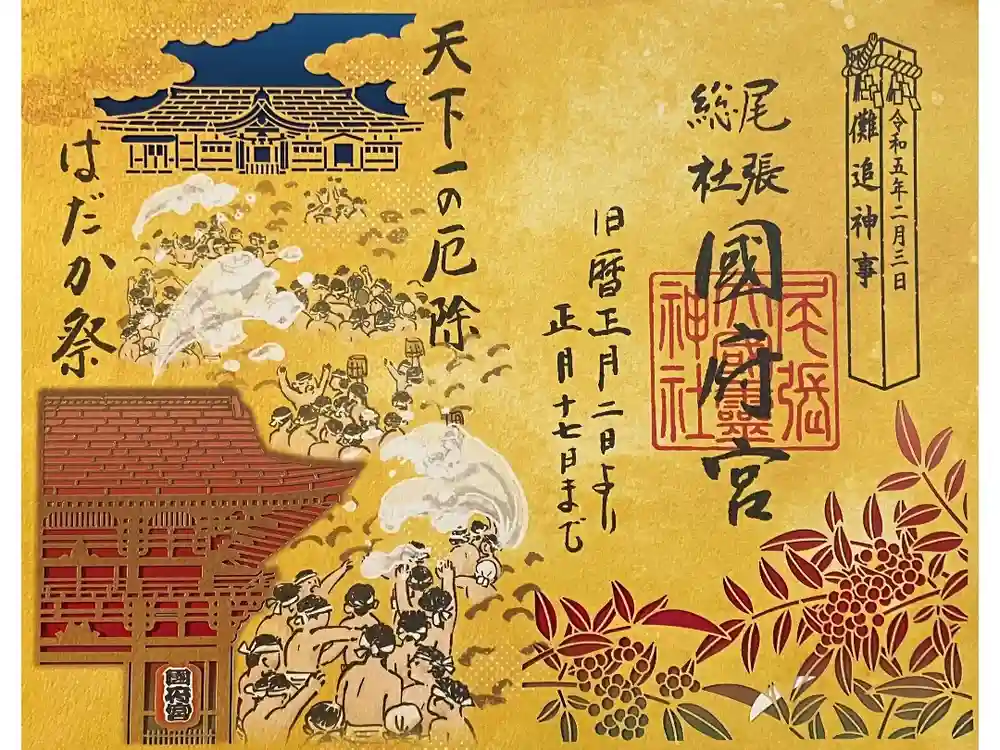 令和五年二月三日
儺追神事
尾張
総社
國府宮
尾張
大國靈
神社
旧暦正月二日より
正月十七日まで
天下一の厄除
はだか祭
國府宮